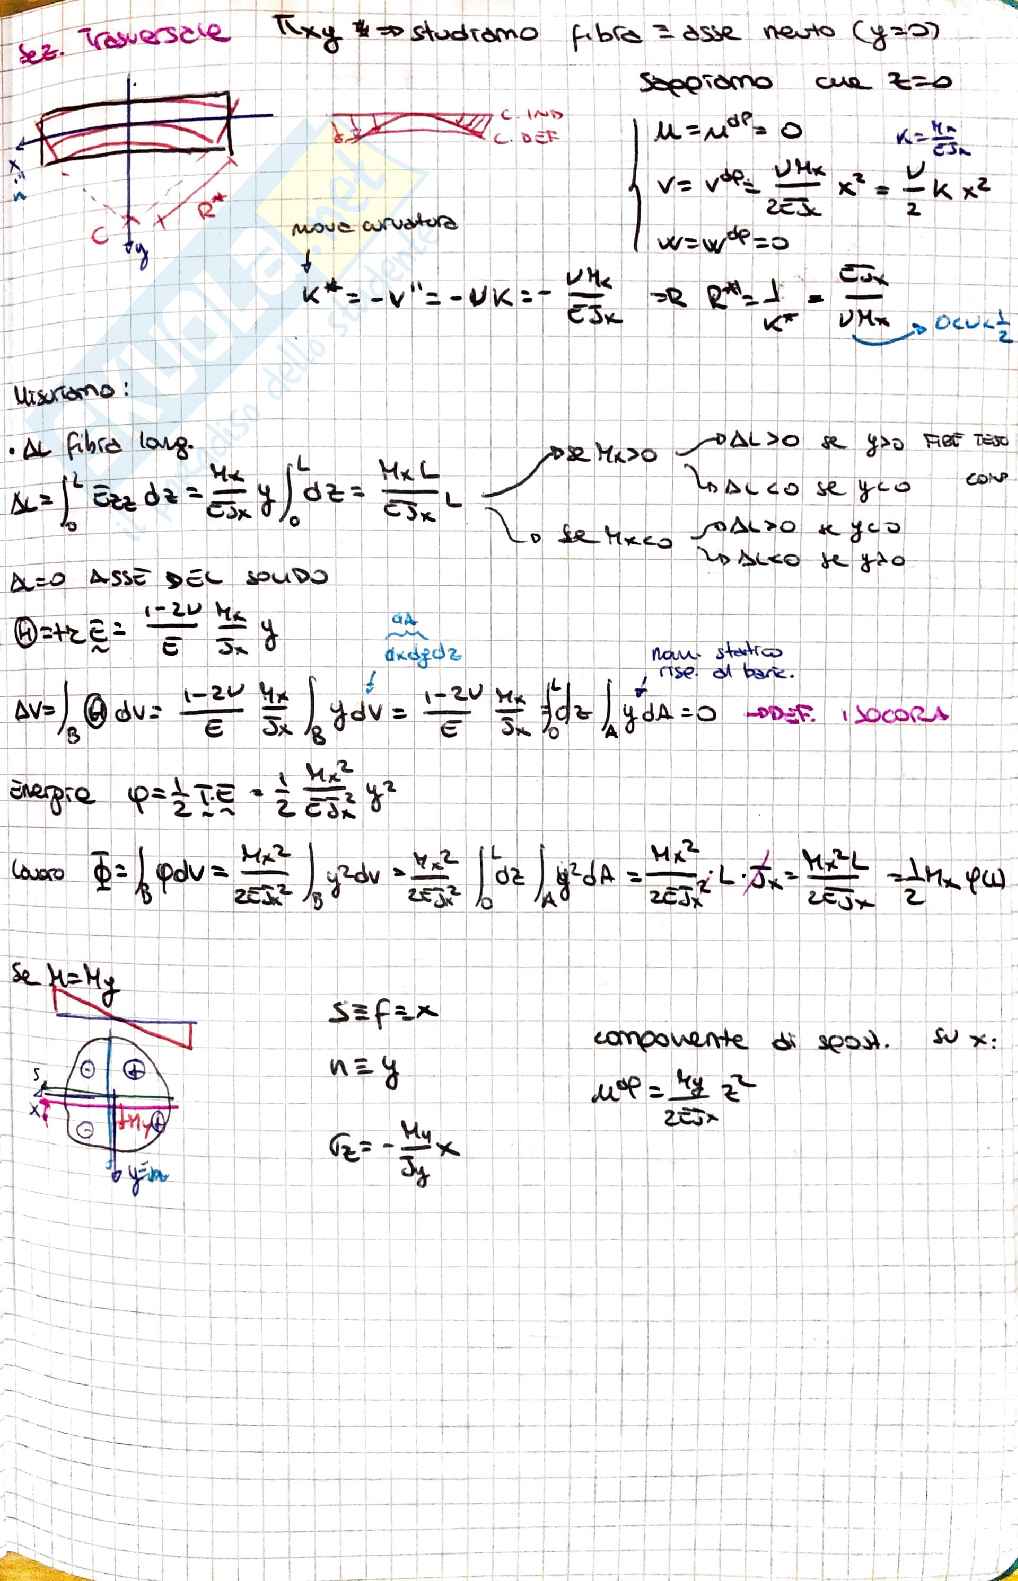 Sez. Trasversale πxy * => studiamo fibra ≡ asse neutro (y=0)
sappiamo che z=0
C. IND
C. DEF
u = u^dp = 0
K = Mx/EJx
v = v^dp = νMx/2EJx x² = ν/2 K x²
w = w^dp = 0
x ≡ n
C
R*
y
nuova curvatura
K* = -v'' = -νK = - νMx/EJx => R* = 1/K* = EJx/νMx → 0<ν<1/2
Misuriamo:
• ΔL fibra long.
ΔL = ∫₀ᴸ Ezz dz = Mx/EJx y ∫₀ᴸ dz = MxL/EJx L
se Mx>0
ΔL>0 se y>0 FIBRE TESE
ΔL<0 se y<0 COMP
se Mx<0
ΔL>0 se y<0
ΔL<0 se y>0
ΔL=0 ASSE DEL SOLIDO
Θ = tr E = 1-2ν/E Mx/Jx y
dA
dxdydz
mom. statico
risp. al baric.
ΔV = ∫B Θ dV = 1-2ν/E Mx/Jx ∫B y dV = 1-2ν/E Mx/Jx ∫₀ᴸ dz ∫A y dA = 0 → DEF. ISOCORA
Energia φ = 1/2 T·E = 1/2 Mx²/EJx² y²
Lavoro Φ = ∫B φ dV = Mx²/2EJx² ∫B y² dV = Mx²/2EJx² ∫₀ᴸ dz ∫A y² dA = Mx²/2EJx² · L · Jx = Mx²L/2EJx = 1/2 Mx φ(L)
Se M = My
s ≡ f ≡ x
n ≡ y
σz = - My/Jy x
componente di spost. su x:
u^dp = My/2EJx z²
s
x
- +
- +
My
y ≡ n